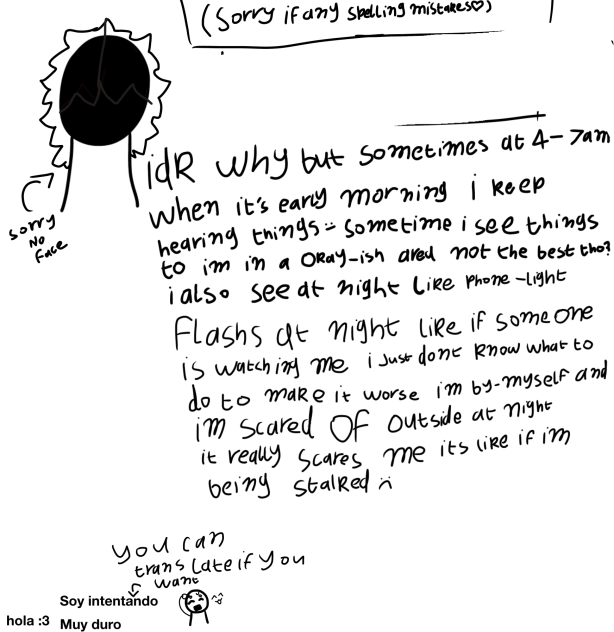 (Sorry if any spelling mistakes♡)
sorry
no
face
idk why but sometimes at 4-7am
when it's early morning i keep
hearing things - sometime i see things
to im in a okay-ish area not the best tho?
i also see at night like phone-light
flashs at night like if someone
is watching me i just dont know what to
do to make it worse im by-myself and
im scared of outside at night
it really scares me its like if im
being stalked :(
you can
translate if you
want
Soy intentando
hola :3 Muy duro